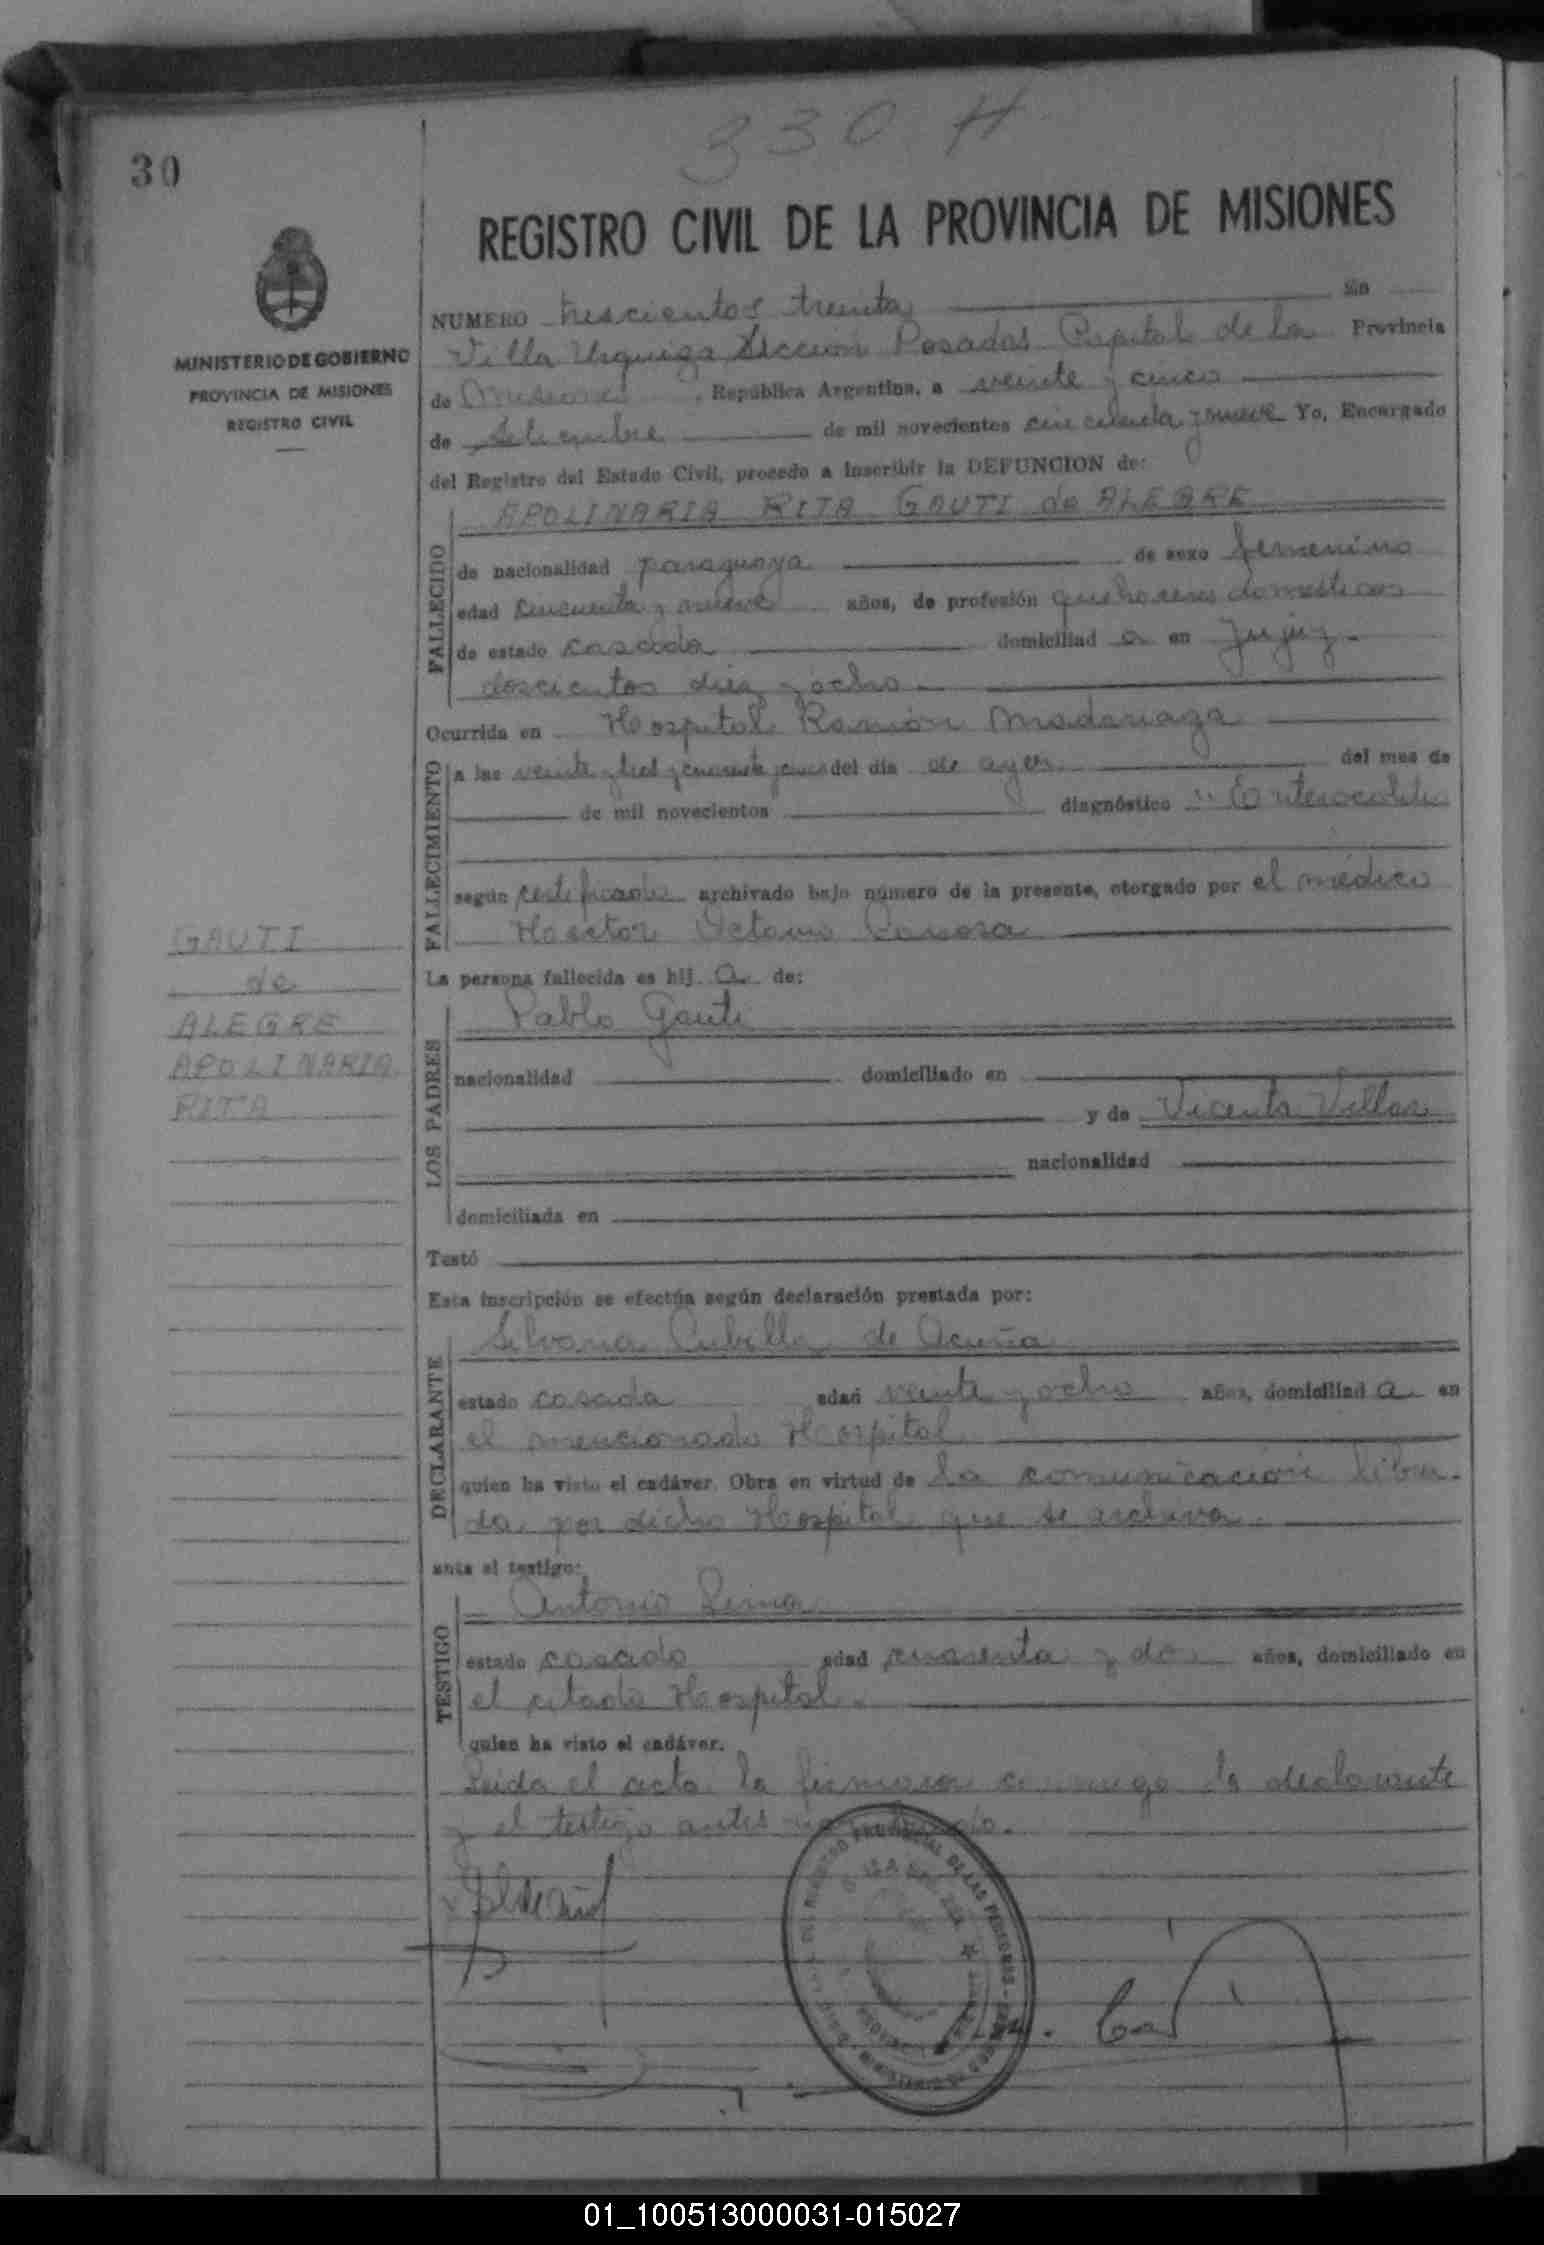 330 H
30
REGISTRO CIVIL DE LA PROVINCIA DE MISIONES
MINISTERIO DE GOBIERNO
PROVINCIA DE MISIONES
REGISTRO CIVIL
NUMERO trescientos treinta En
Villa Urquiza Sección Posadas Capital de la Provincia
de Misiones, República Argentina, a veinte y cinco
de Setiembre de mil novecientos cincuenta y nueve Yo, Encargado
del Registro del Estado Civil, procedo a inscribir la DEFUNCION de:
FALLECIDO
APOLINARIA RITA GAUTI de ALEGRE
de nacionalidad paraguaya de sexo femenino
edad cincuenta y nueve años, de profesión quehaceres domesticos
de estado casada domiciliad a en Jujuy
doscientos diez y ocho
Ocurrida en Hospital Ramón Madariaga
FALLECIMIENTO
a las veinte y tres y cuarenta y cinco del día de ayer del mes de
de mil novecientos diagnóstico "Enterocolitis
según certificado archivado bajo número de la presente, otorgado por el médico
Hector Octavio
La persona fallecida es hij a de:
LOS PADRES
Pablo Gauti
nacionalidad domiciliado en
y de Vicenta
nacionalidad
domiciliada en
Testó
Esta inscripción se efectúa según declaración prestada por:
DECLARANTE
Silvana Cubilla de Acuña
estado casada edad veinte y ocho años, domiciliad a en
el mencionado Hospital
quien ha visto el cadáver. Obra en virtud de la comunicación libra-
da por dicho Hospital que se archiva.
ante el testigo:
TESTIGO
Antonio
estado casado edad cuarenta y dos años, domiciliado en
el citado Hospital.
quien ha visto el cadáver.
Leida el acta la firmaron conmigo la declarante
y el testigo antes
GAUTI
de
ALEGRE
APOLINARIA
RITA
01_100513000031-015027